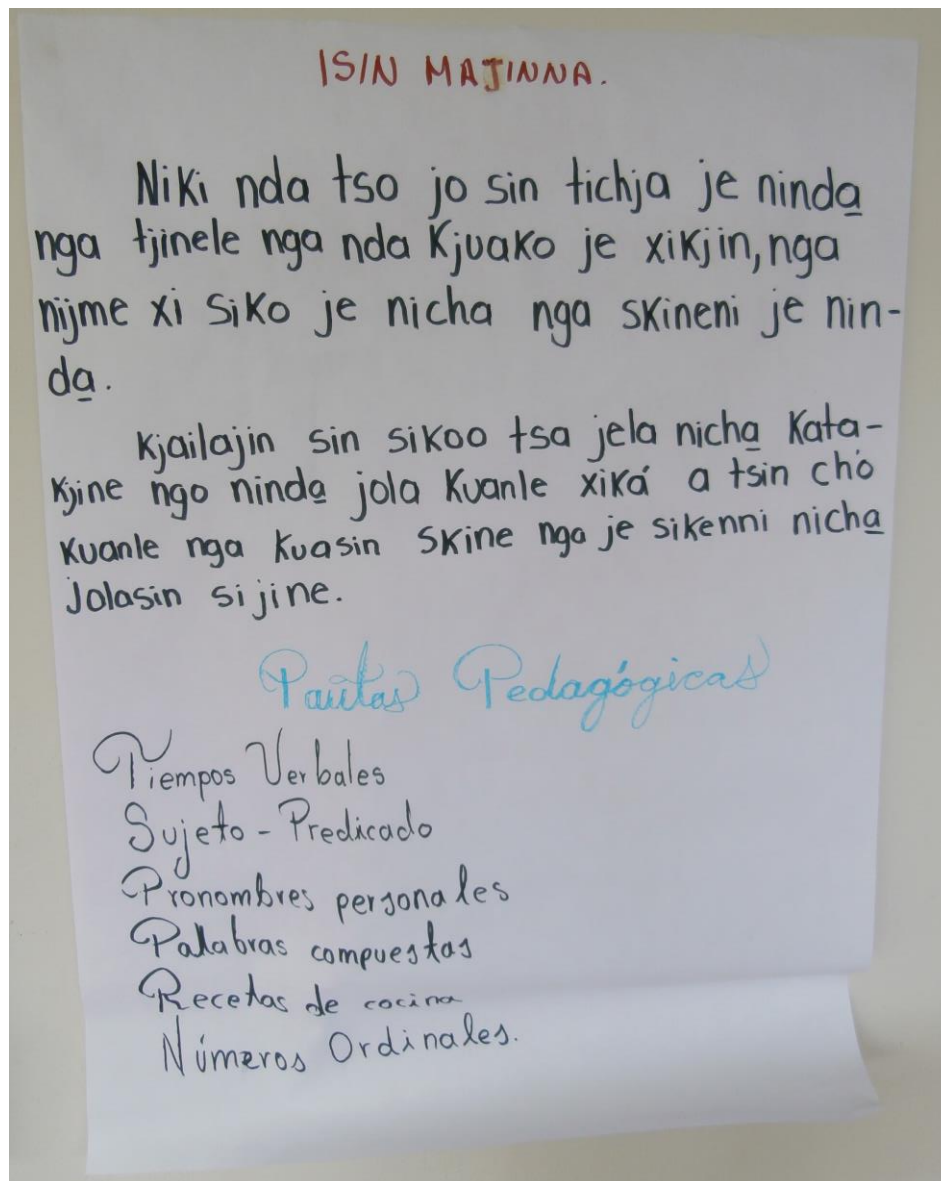 ISIN MAJINNA.
Niki nda tso jo sin tichja je ninda̱
nga tjinele nga nda Kjuako je xikjin, nga
nijme xi siko je nicha nga skineni je nin-
da̱.
Kjailajin sin sikoo tsa jela nicha̱ Kata-
Kjine ngo ninda̱ jola Kuanle xiká a tsin cho
Kuanle nga kuasin skine nga je sikenni nicha̱
Jolasin sijine.
Pautas Pedagógicas
Tiempos Verbales
Sujeto - Predicado
Pronombres personales
Palabras compuestas
Recetas de cocina
Números Ordinales.